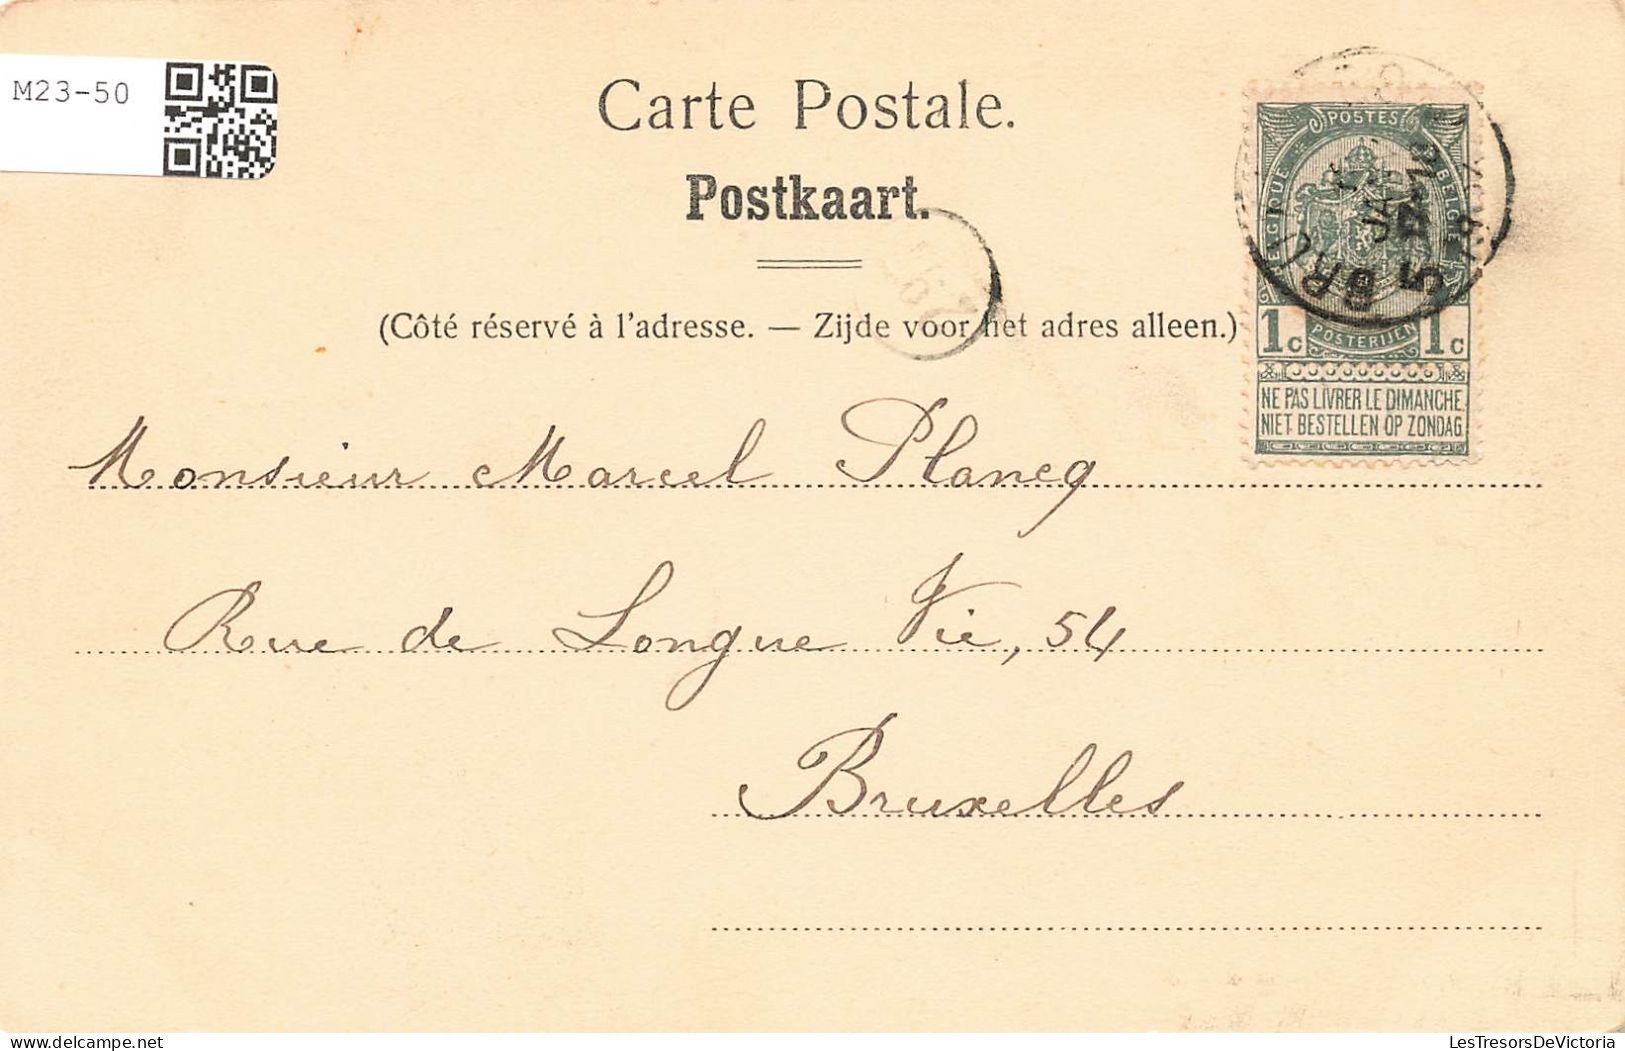 M23-50
Carte Postale.
Postkaart.
(Côté réservé à l'adresse. — Zijde voor het adres alleen.)
POSTES
BELGIQUE BELGIË
1c POSTERIJEN 1c
NE PAS LIVRER LE DIMANCHE
NIET BESTELLEN OP ZONDAG
Monsieur Marcel Plancq
Rue de Longue Vie, 54
Bruxelles
LesTresorsDeVictoria